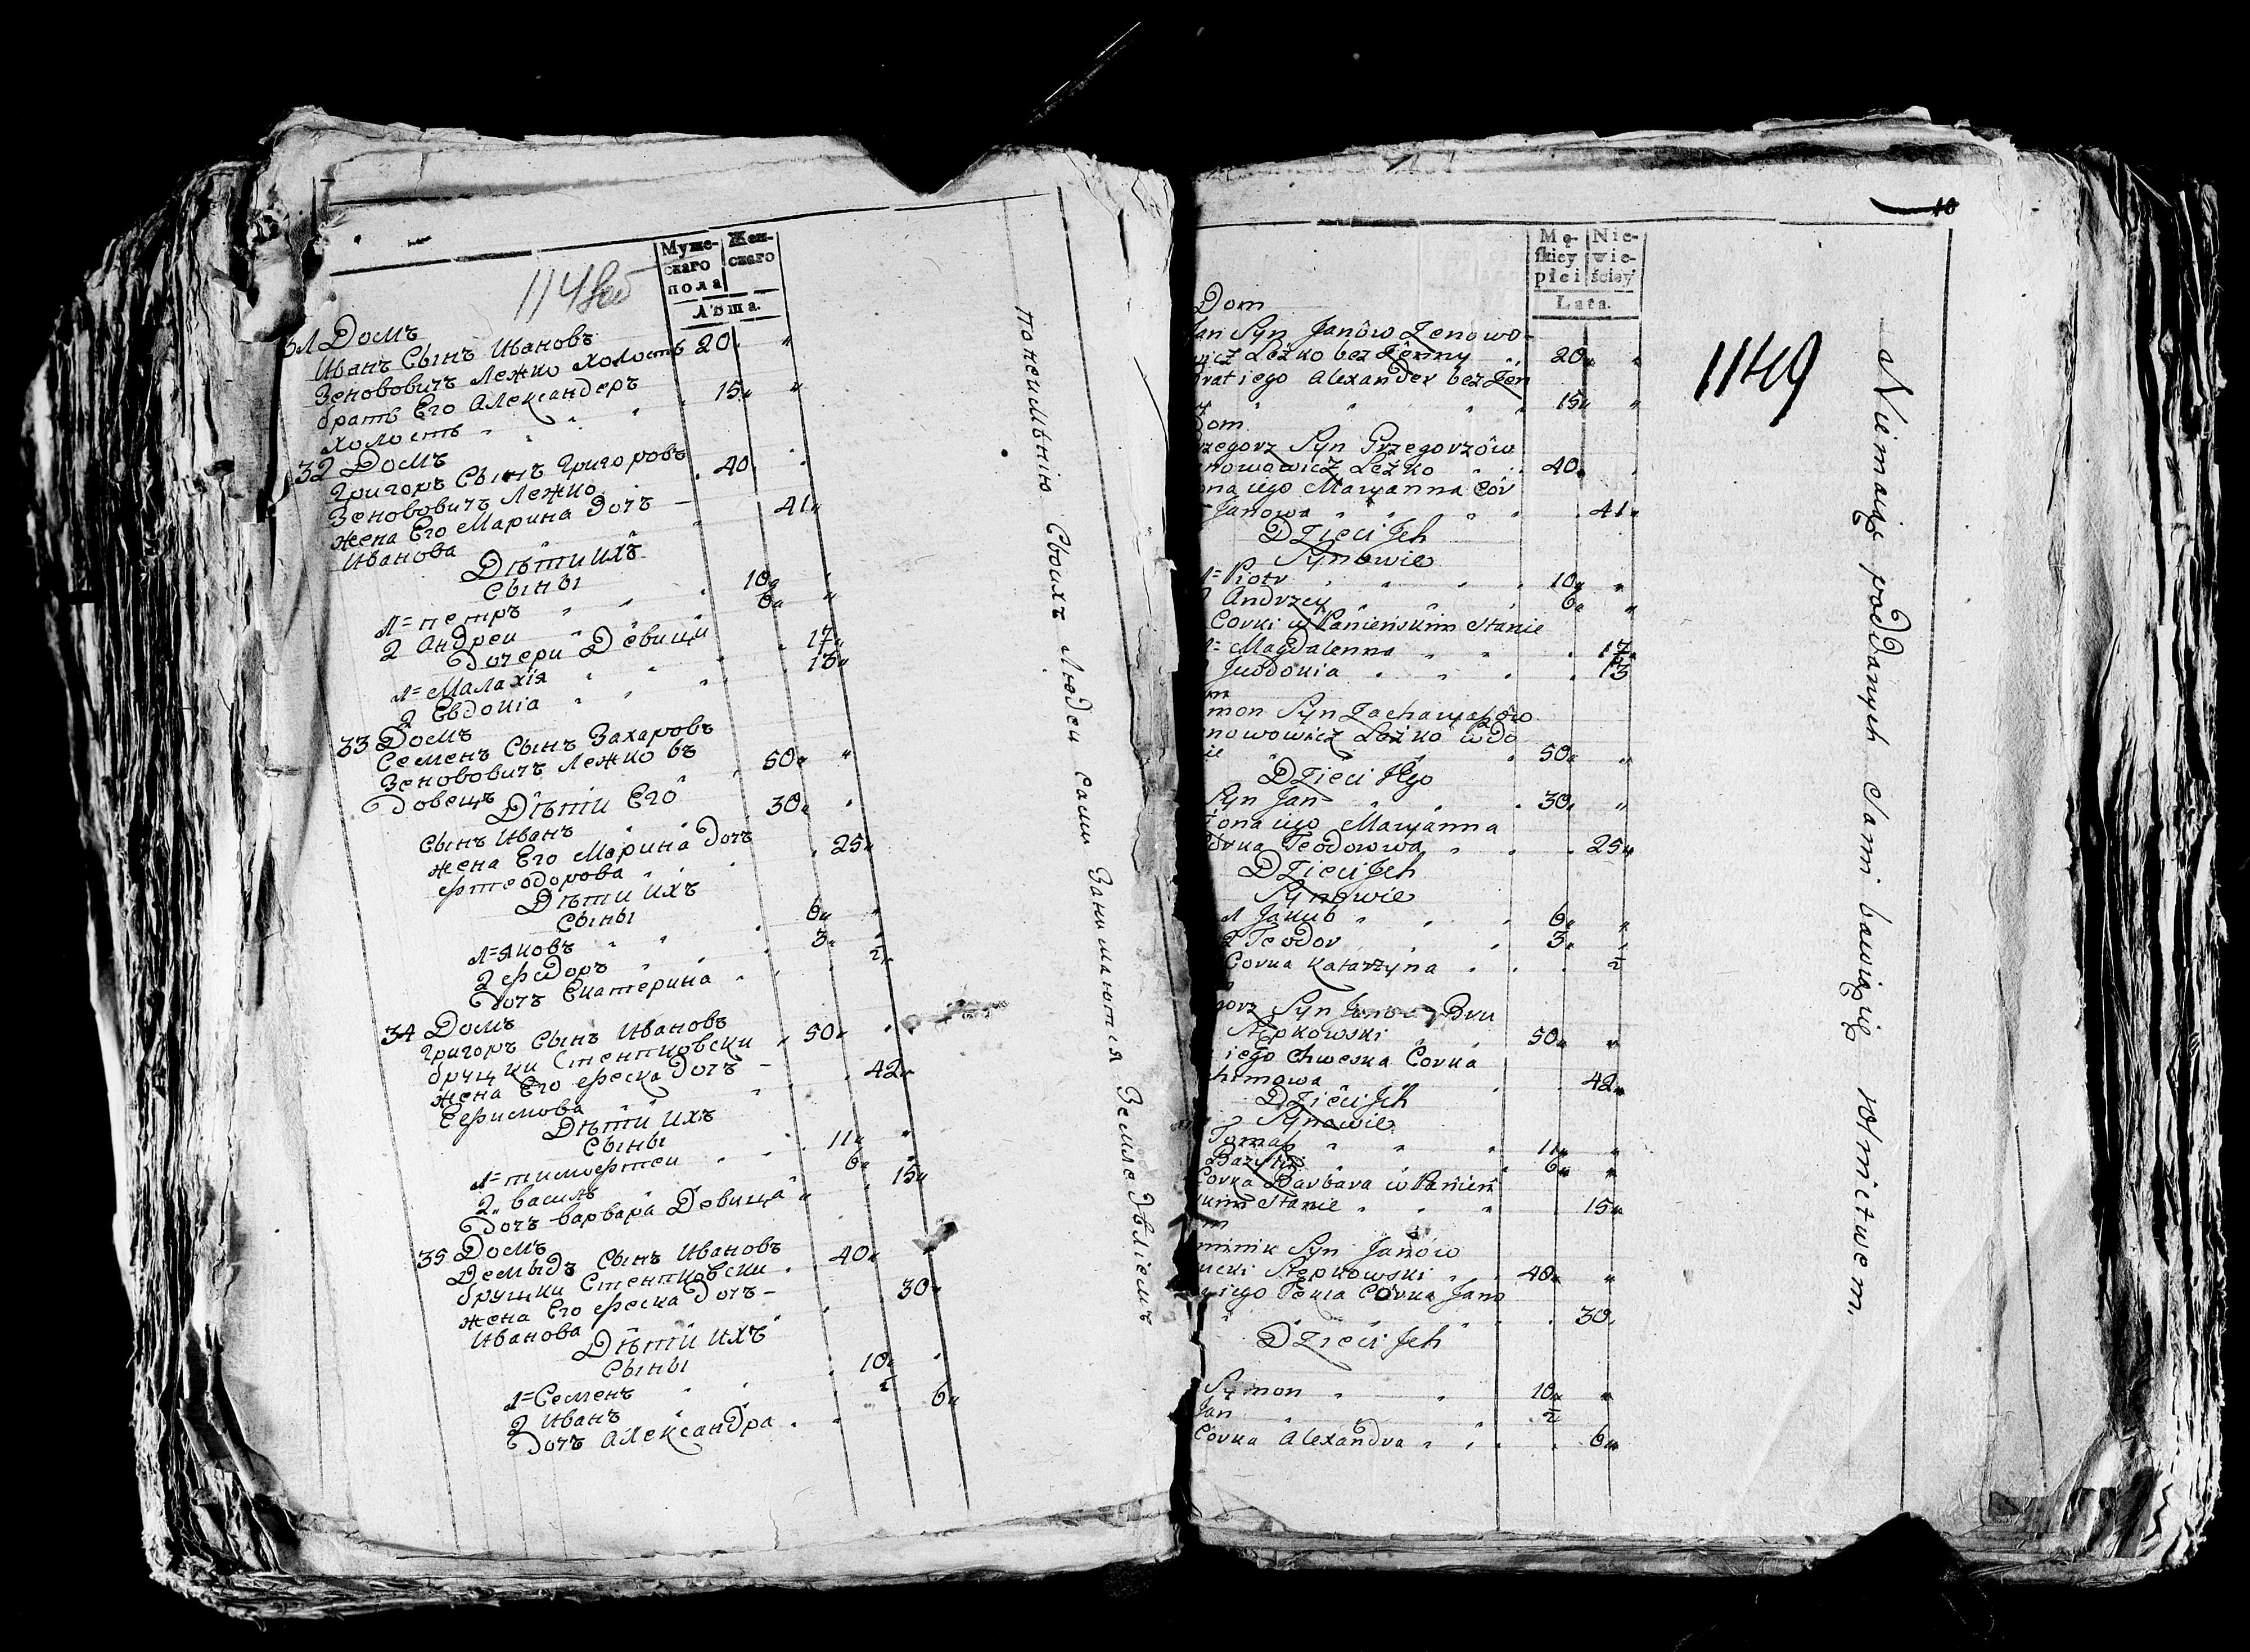 1148об
Муже-
скаго
пола
Жен-
скаго
Лѣта.
31 Домъ
Иванъ Сынъ Ивановъ
Зенововичъ Лежко Холостъ 20 "
братъ Его Александеръ
холостъ " " " 15 "
32 Домъ
Григоръ Сынъ Григоровъ
Зенововичъ Лежко 40 "
жена Его Марина Дочъ
Иванова " " 41 "
Дѣти ихъ
Сыны
1= петръ " " 10 "
2 Андреи " " 6 "
Дочери Дѣвици
1= Малахія " " 17 "
2 Евдокіа " " 13 "
33 Домъ
Семенъ Сынъ Захаровъ
Зенововичъ Лежко въ
Довецъ 50 "
Дѣти Его
Сынъ Иванъ " 30 "
жена Его Марина Дочъ
фтеодорова " 25 "
Дѣти ихъ
Сыны
1= яковъ " " 6 "
2 фидоръ " " 3 "
Дочъ Екатерина " ½
34 Домъ
Григоръ Сынъ Ивановъ
бруцки Стентковски 50 "
жена Его феска Дочъ
Ефимова " " 42 "
Дѣти ихъ
Сыны
1= тимофтеи " 11 "
2 василъ " 6 "
Дочъ варвара Девица 15 "
35 Домъ
Демыдъ Сынъ Ивановъ
бруцки Стентковски 40 "
жена Его феска Дочъ
Иванова " 30 "
Дѣти ихъ
Сыны
1= Семенъ " " 10 "
2 Иванъ " " ½
Дочъ Александра " 6 "
понеимѣнію Своихъ Людеи сами Занимаются Земледѣліемъ
10
1149
Mę-
skiey
płci
Nie-
wie-
ściey
Lata.
Dom
Jan Syn Janów Zenowo-
wicz Leżko bez Żenny " 20 "
brat iego Alexander bez Żen
ny " " " 15 "
Dom
rzegorz Syn Grzegorzów
enowowicz Leżko " 40 "
ona iego Maryanna Cór
Janowa " " " 41 "
Dzieci Jch
Synowie
1= Piotr " " 10 "
2 Andrzey " " 6 "
Corki w Panieńskim Stanie
1= Magdalenna " " 17 "
Jwdokia " " 13
mon Syn Zacharyaszów
nowowicz Leżko wdo
ie " " 50 "
Dzieci Jego
Syn Jan " " 30 "
żona iego Maryanna
Córka Teodorowa " 25 "
Dzieci Jch
Synowie
1 Jakub " " 6 "
2 Teodor " " 3 "
Corka Katarzyna " ½
gorz Syn Janow Bru
Stępkowski " 50 "
iego Chweska Corka
himowa " 42 "
Dzieci Jch
Synowie
Tomasz " " 11 "
Bazyli " " 6 "
Corka Barbara w Panień
skim Stanie " " 15 "
minik Syn Janów
ucki Stępkowski " 40 "
iego Tekla Córka Jano
" " " 30 "
Dzieci Jch
Symon " " 10 "
Jan " " ½
Córka Alexandra " " 6 "
Niemaiąc poddanych Sami bawią się rolnictwem.